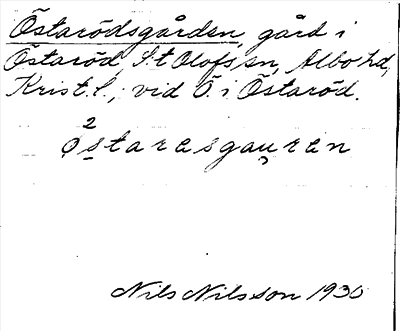 Östarödsgården, gård i
Östaröd, St Olofs sn, Albo hd,
Krist. l., vid Ö i Östaröd.
2
østaresgauren
Nils Nilsson 1930